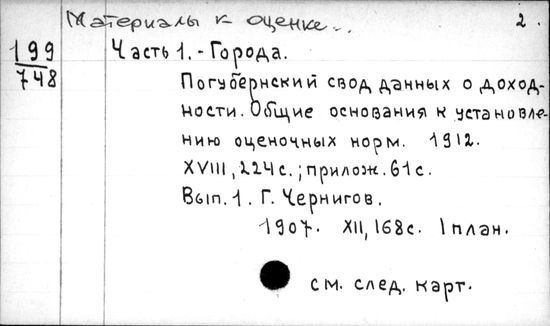 Материалы к оценке... 2.
199
748
Часть 1. - Города.
Погубернский свод данных о доход-
ности. Общие основания к установле-
нию оценочных норм. 1912.
XVIII, 224 с.; прилож. 61 с.
Вып. 1. Г. Чернигов.
1907. XII, 168 с. 1 план.
см. след. карт.